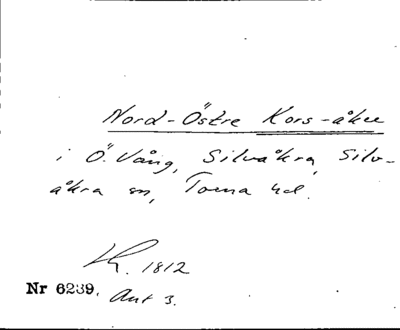 Nord-Östre Kors-åker
i Ö. Vång, Silvåkra, Silv-
åkra sn, Torna hd.
Lh. 1812
Nr 6239, Akt 3.